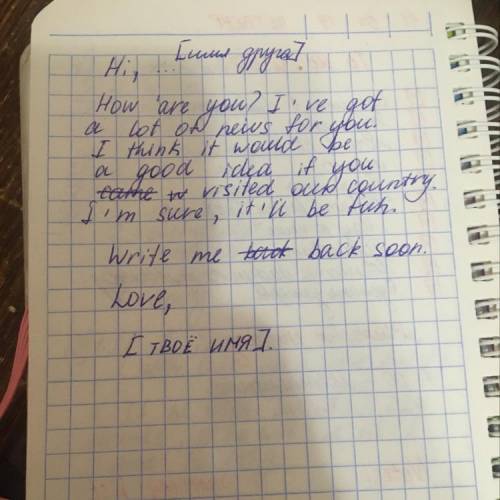 Hi, ... [имя друга]
How are you? I've got
a lot of news for you.
I think it would be
a good idea if you
came w visited our country.
I'm sure, it'll be fun.
Write me back soon.
Love,
[ТВОЁ ИМЯ].